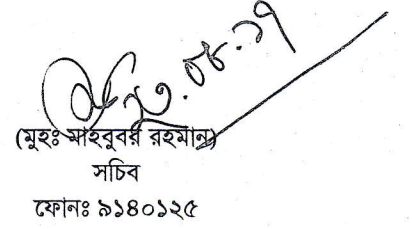 ২৩.০৮.১৭
(মুহঃ মাহবুবর রহমান)
সচিব
ফোনঃ ৯১৪০১২৫